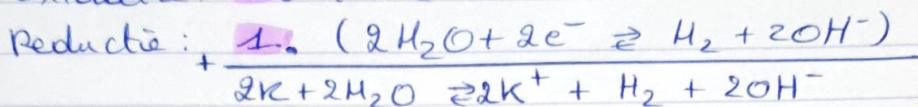 Reductie: 1. (2H₂O + 2e⁻ ⇄ H₂ + 2OH⁻)
+
2K + 2H₂O ⇄ 2K⁺ + H₂ + 2OH⁻